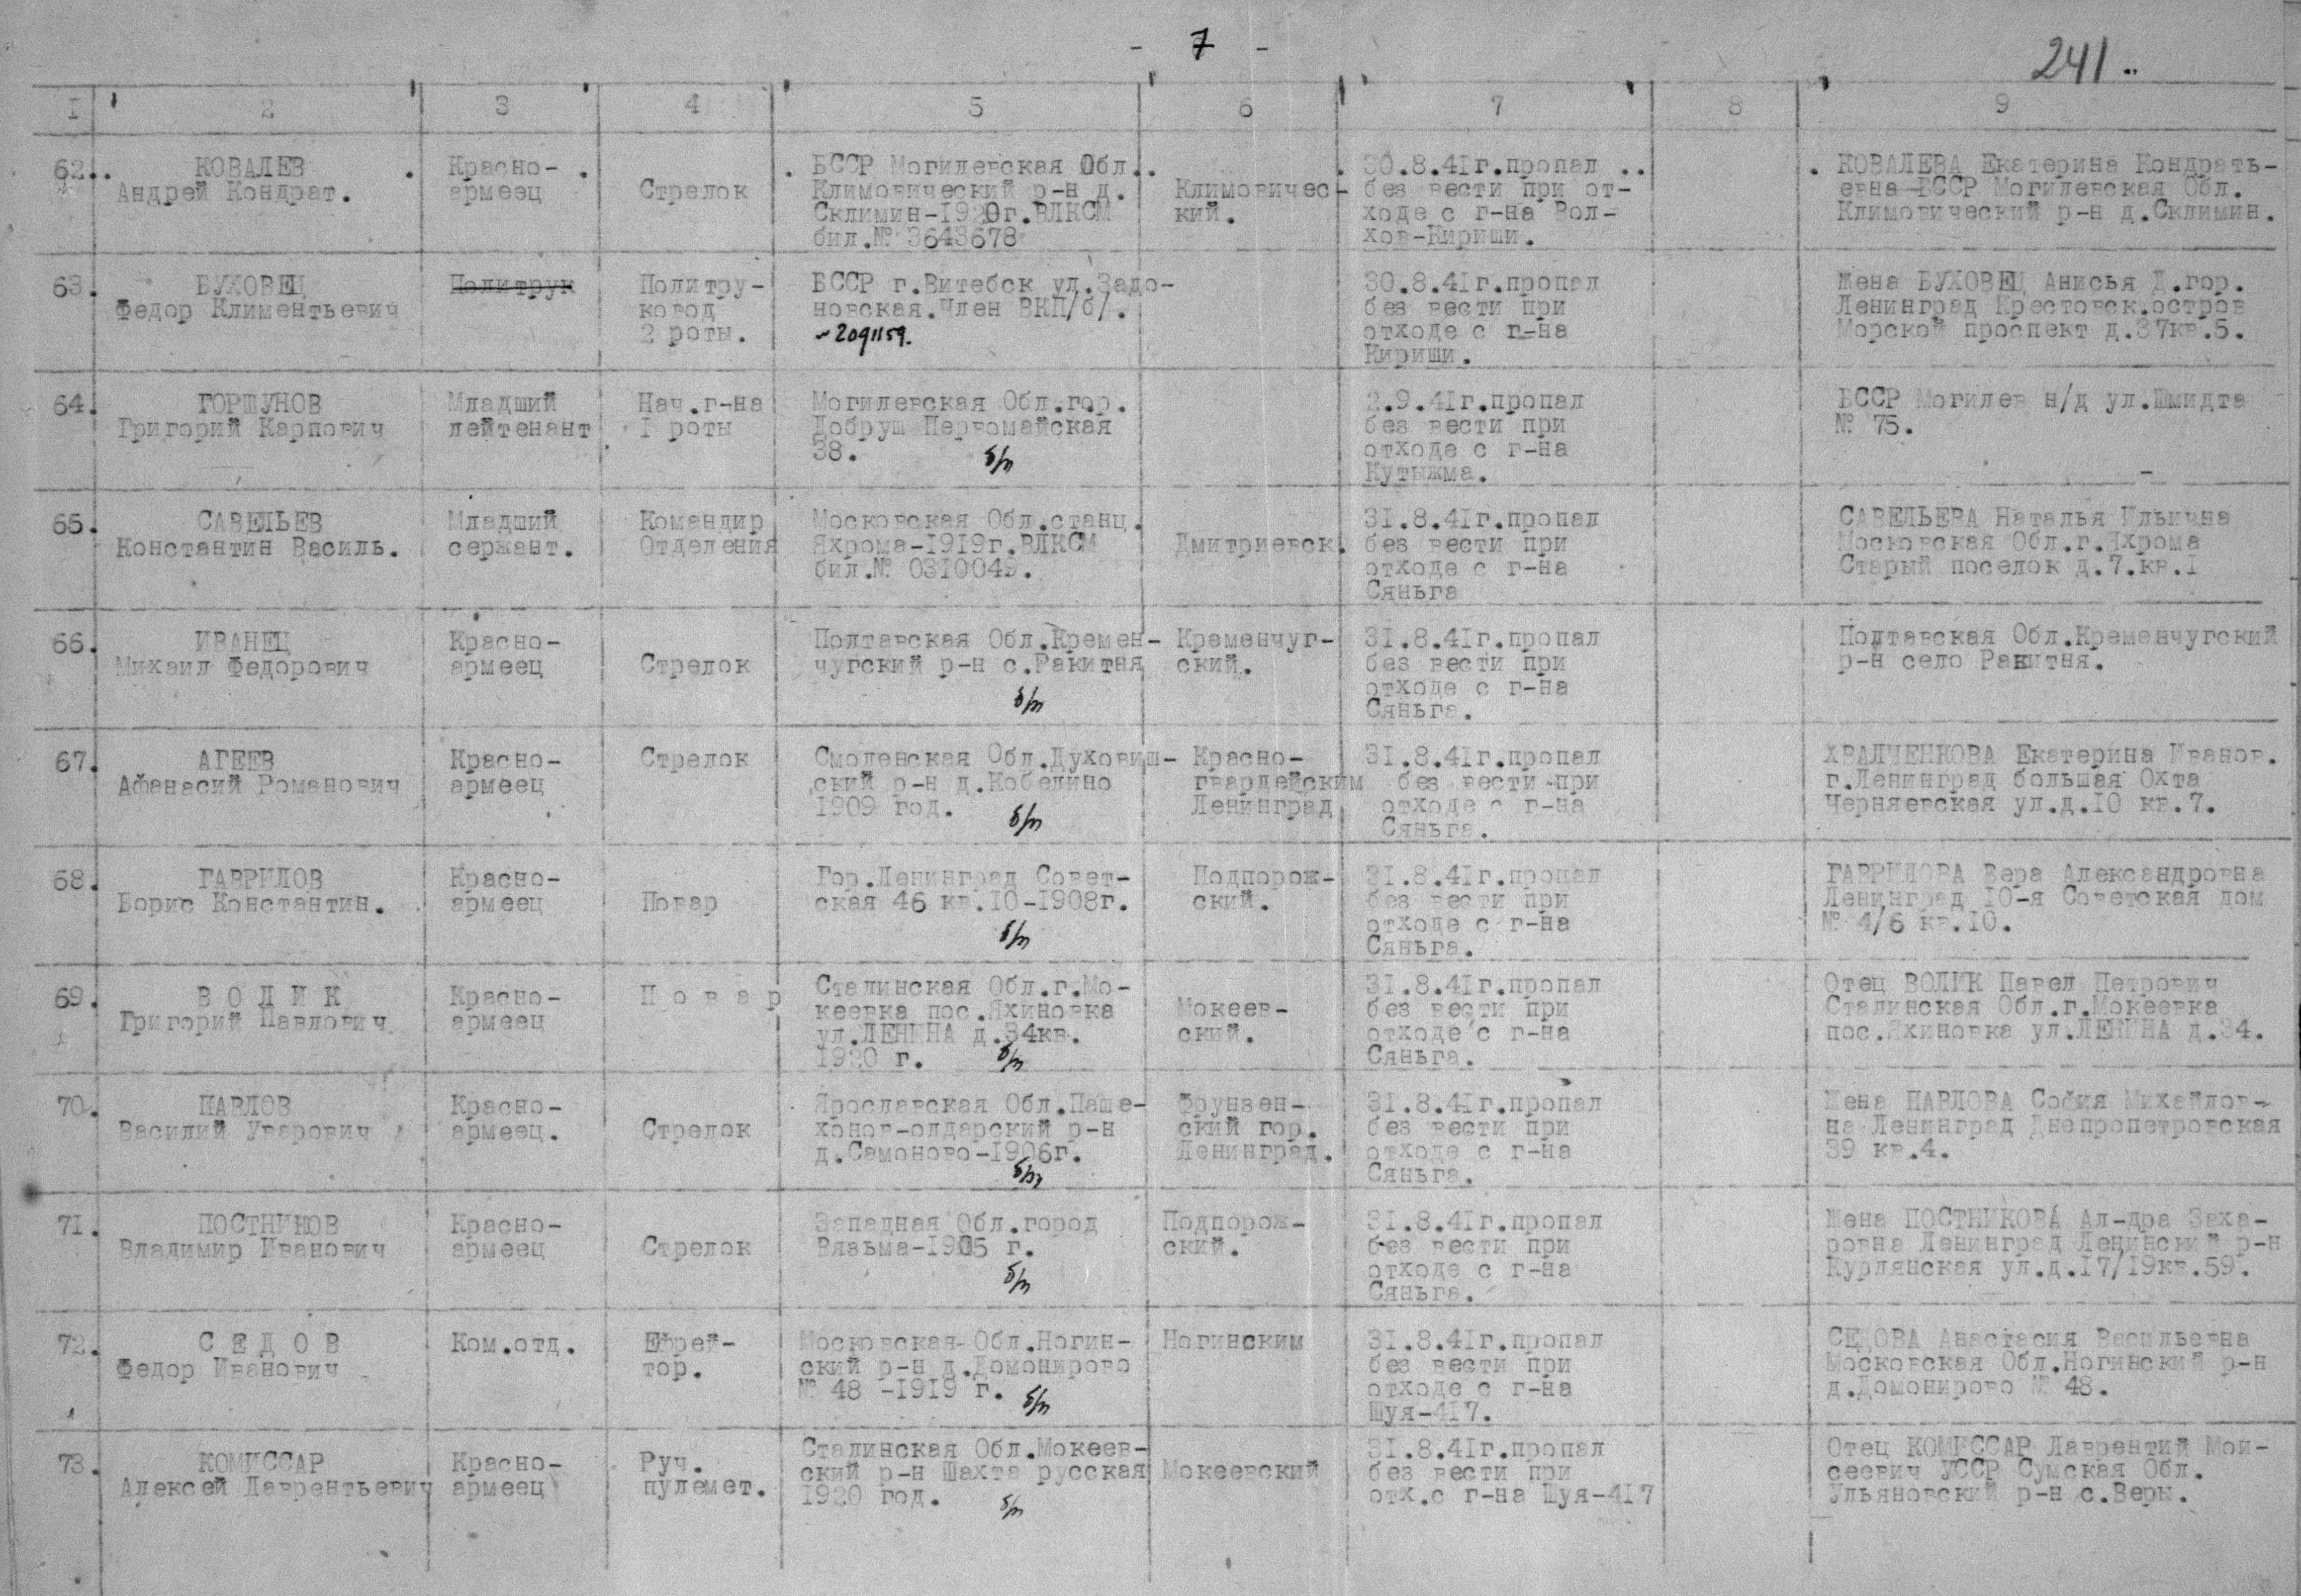 - 7 -
241.
I 2 3 4 5 6 7 8 9
62. КОВАЛЕВ
Андрей Кондрат.
Красно-
армеец
Стрелок
БССР Могилевская Обл.
Климовический р-н д.
Склимин-1920г.ВЛКСМ
бил.№ 3643678
Климовичес-
кий.
30.8.41г.пропал
без вести при от-
ходе с г-на Вол-
хов-Кириши.
КОВАЛЕВА Екатерина Кондрать-
евна-БССР Могилевская Обл.
Климовический р-н д.Склимин.
63. БУХОВЕЦ
Федор Климентьевич
Политрук
Политру-
ковод
2 роты.
БССР г.Витебск ул.Задо-
новская.Член ВКП/б/.
~2091159.
30.8.41г.пропал
без вести при
отходе с г-на
Кириши.
Жена БУХОВЕЦ Анисья Д.гор.
Ленинград Крестовск.остров
Морской проспект д.37кв.5.
64. ГОРШУНОВ
Григорий Карпович
Младший
лейтенант
Нач.г-на
I роты
Могилевская Обл.гор.
Добруш Первомайская
38.
б/п
2.9.41г.пропал
без вести при
отходе с г-на
Кутыжма.
БССР Могилев н/д ул.Шмидта
№ 75.
65. САВЕЛЬЕВ
Константин Василь.
Младший
сержант.
Командир
Отделения
Московская Обл.станц.
Яхрома-1919г.ВЛКСМ
бил.№ 0310049.
Дмитриевск.
31.8.41г.пропал
без вести при
отходе с г-на
Сяньга
САВЕЛЬЕВА Наталья Ильична
Московская Обл.г.Яхрома
Старый поселок д.7.кв.I
66. ИВАНЕЦ
Михаил Федорович
Красно-
армеец
Стрелок
Полтавская Обл.Кремен-
чугский р-н с.Ракитня
б/п
Кременчуг-
ский.
31.8.41г.пропал
без вести при
отходе с г-на
Сяньга.
Полтавская Обл.Кременчугский
р-н село Ракитня.
67. АГЕЕВ
Афанасий Романович
Красно-
армеец
Стрелок
Смоленская Обл.Духовиш-
ский р-н д.Кобелино
1909 год.
б/п
Красно-
гвардейским
Ленинград
31.8.41г.пропал
без вести при
отходе с г-на
Сяньга.
ХВАЛЧЕНКОВА Екатерина Иванов.
г.Ленинград большая Охта
Черняевская ул.д.10 кв.7.
68. ГАВРИЛОВ
Борис Константин.
Красно-
армеец
Повар
Гор.Ленинград Совет-
ская 46 кв.10-1908г.
б/п
Подпорож-
ский.
31.8.41г.пропал
без вести при
отходе с г-на
Сяньга.
ГАВРИЛОВА Вера Александровна
Ленинград 10-я Советская дом
№ 4/6 кв.10.
69. В О Л И К
Григорий Павлович
Красно-
армеец
П о в а р
Сталинская Обл.г.Мо-
кеевка пос.Яхиновка
ул.ЛЕНИНА д.34кв.
1920 г.
б/п
Мокеев-
ский.
31.8.41г.пропал
без вести при
отходе с г-на
Сяньга.
Отец ВОЛИК Павел Петрович
Сталинская Обл.г.Мокеевка
пос.Яхиновка ул.ЛЕНИНА д.34.
70. ПАВЛОВ
Василий Уварович
Красно-
армеец.
Стрелок
Ярославская Обл.Паше-
хонов-олдарский р-н
д.Самоново-1906г.
б/п
Фрунзен-
ский гор.
Ленинград.
31.8.41г.пропал
без вести при
отходе с г-на
Сяньга.
Жена ПАВЛОВА София Михайлов-
на Ленинград Днепропетровская
39 кв.4.
71. ПОСТНИКОВ
Владимир Иванович
Красно-
армеец
Стрелок
Западная Обл.город
Вязьма-1905 г.
б/п
Подпорож-
ский.
31.8.41г.пропал
без вести при
отходе с г-на
Сяньга.
Жена ПОСТНИКОВА Ал-дра Заха-
ровна Ленинград Ленинский р-н
Курлянская ул.д.17/19кв.59.
72. С Е Д О В
Федор Иванович
Ком.отд.
Ефрей-
тор.
Московская Обл.Ногин-
ский р-н д.Домонирово
№ 48 -1919 г.
б/п
Ногинским
31.8.41г.пропал
без вести при
отходе с г-на
Шуя-417.
СЕДОВА Анастасия Васильевна
Московская Обл.Ногинский р-н
д.Домонирово № 48.
73. КОМИССАР
Алексей Лаврентьевич
Красно-
армеец
Руч.
пулемет.
Сталинская Обл.Мокеев-
ский р-н Шахта русская
1920 год.
б/п
Мокеевский
31.8.41г.пропал
без вести при
отх.с г-на Шуя-417
Отец КОМИССАР Лаврентий Мои-
сеевич УССР Сумская Обл.
Ульяновский р-н с.Веры.